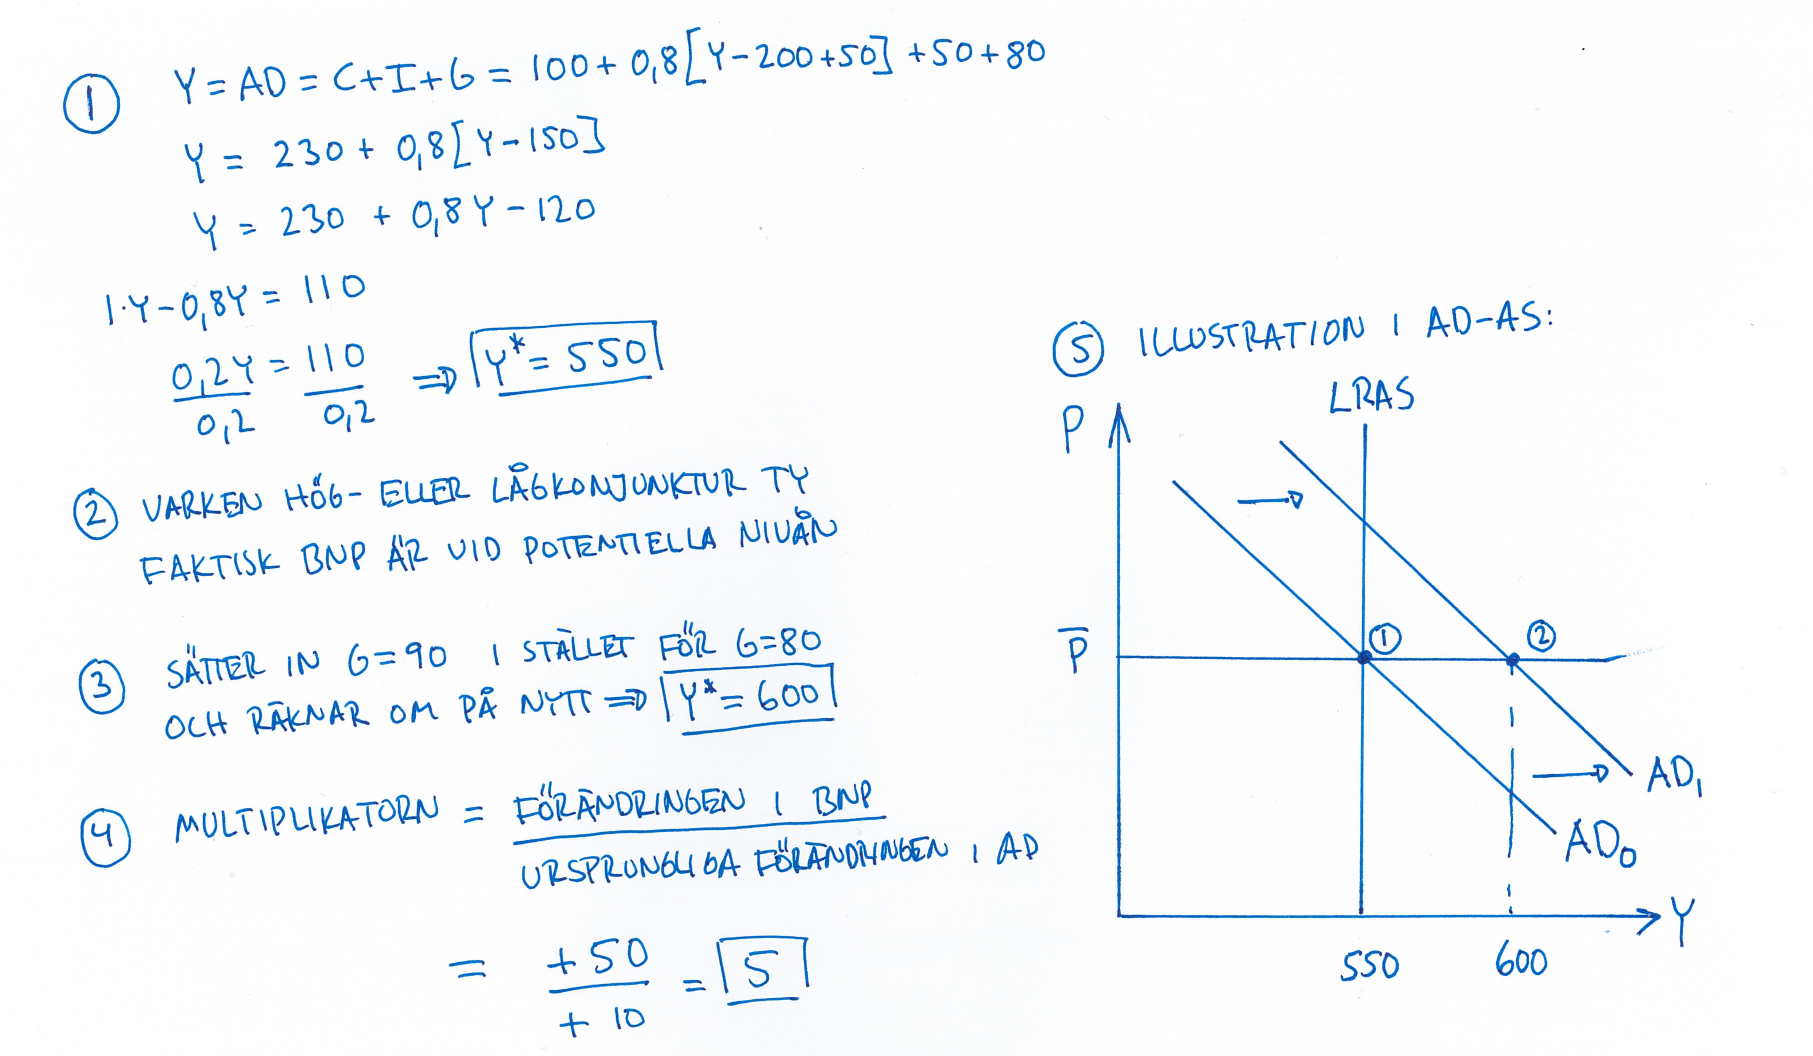 ① Y = AD = C+I+G = 100 + 0,8[Y-200+50] + 50 + 80
Y = 230 + 0,8[Y-150]
Y = 230 + 0,8Y - 120
1·Y-0,8Y = 110
0,2Y = 110 ⇒ Y* = 550
0,2 0,2
② VARKEN HÖG- ELLER LÅGKONJUNKTUR TY
FAKTISK BNP ÄR VID POTENTIELLA NIVÅN
③ SÄTTER IN G=90 I STÄLLET FÖR G=80
OCH RÄKNAR OM PÅ NYTT ⇒ Y* = 600
④ MULTIPLIKATORN = FÖRÄNDRINGEN I BNP
URSPRUNGLIGA FÖRÄNDRINGEN I AD
= +50 = 5
+ 10
⑤ ILLUSTRATION I AD-AS:
LRAS
P
P̅
①
②
AD₁
AD₀
Y
550
600